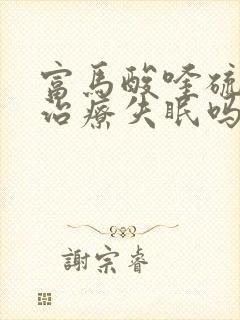 富馬酸喹硫
治療失眠嗎
謝宗睿